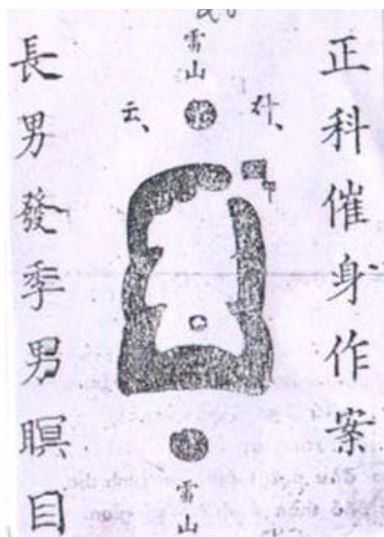 正科催身作案
雷山
云、
雷山
長男發季男瞑目